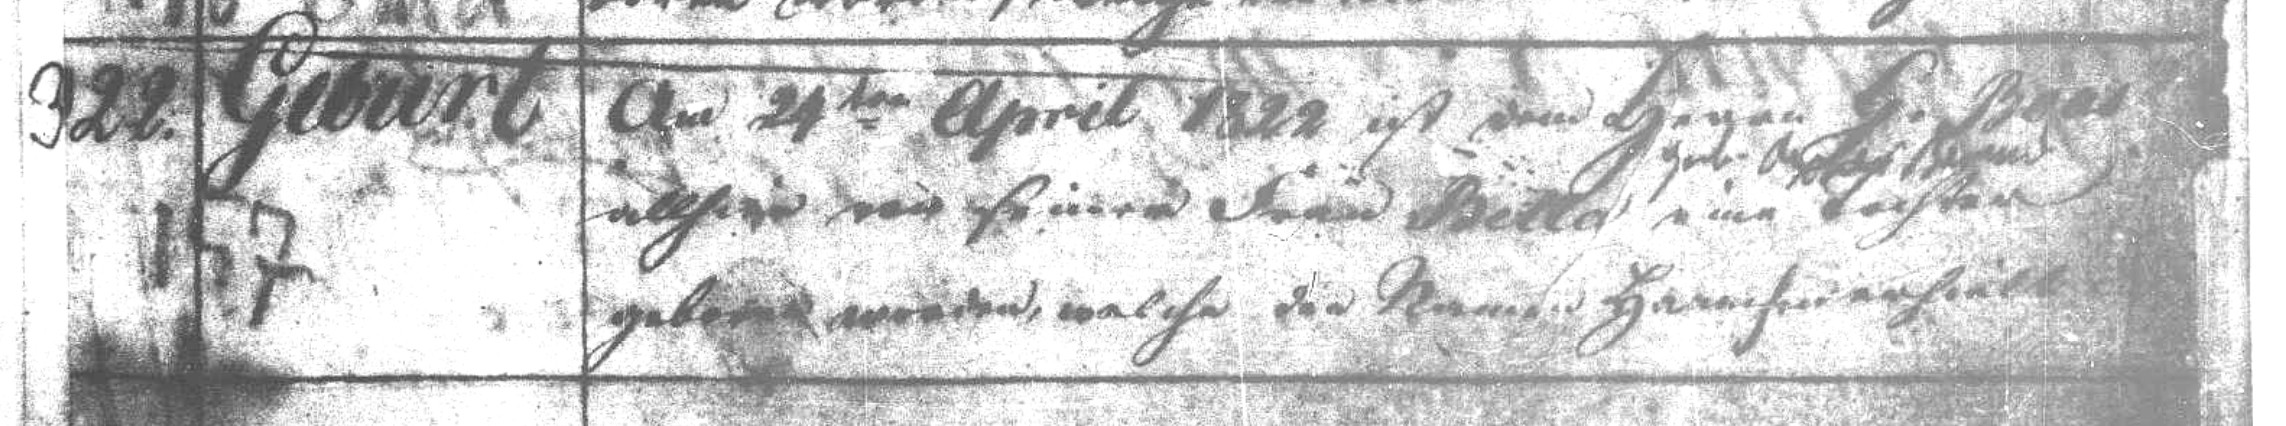 322. Geburt Am 24ten April 1822 ist dem Herrn G. Beer
geb.
allhier von seiner Frau Bella eine Tochter
157
geboren worden, welche den Namen Hannchen erhielt